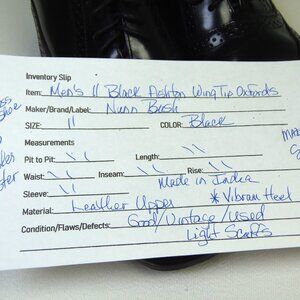 Inventory Slip
Item: Men's 11 Black Ashton WingTip Oxfords
Maker/Brand/Label: Nunn Bush
SIZE: 11 COLOR: Black
Measurements
Pit to Pit: \\ Length: \\
Waist: \\ Inseam: \\ Rise: \\
Sleeve: \\ Made in India
Material: Leather Upper * Vibram Heel
Condition/Flaws/Defects: Good/Vintage/Used
Light Scuffs